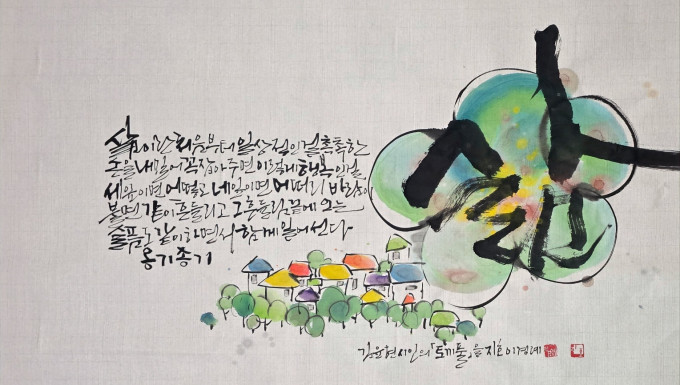 삶
삶이란 처음부터 일상적인 걸 촉촉한
손을 내밀어 꼭 잡아주면 이렇게 행복인 걸
세 잎이면 어떻고 네 잎이면 어떠리 바람이
불면 같이 흔들리고 그 흔들림 끝에 오는
슬픔도 같이하면서 함께 일어선다
옹기종기
김윤현 시인의 「토끼풀」을 지효 이경례